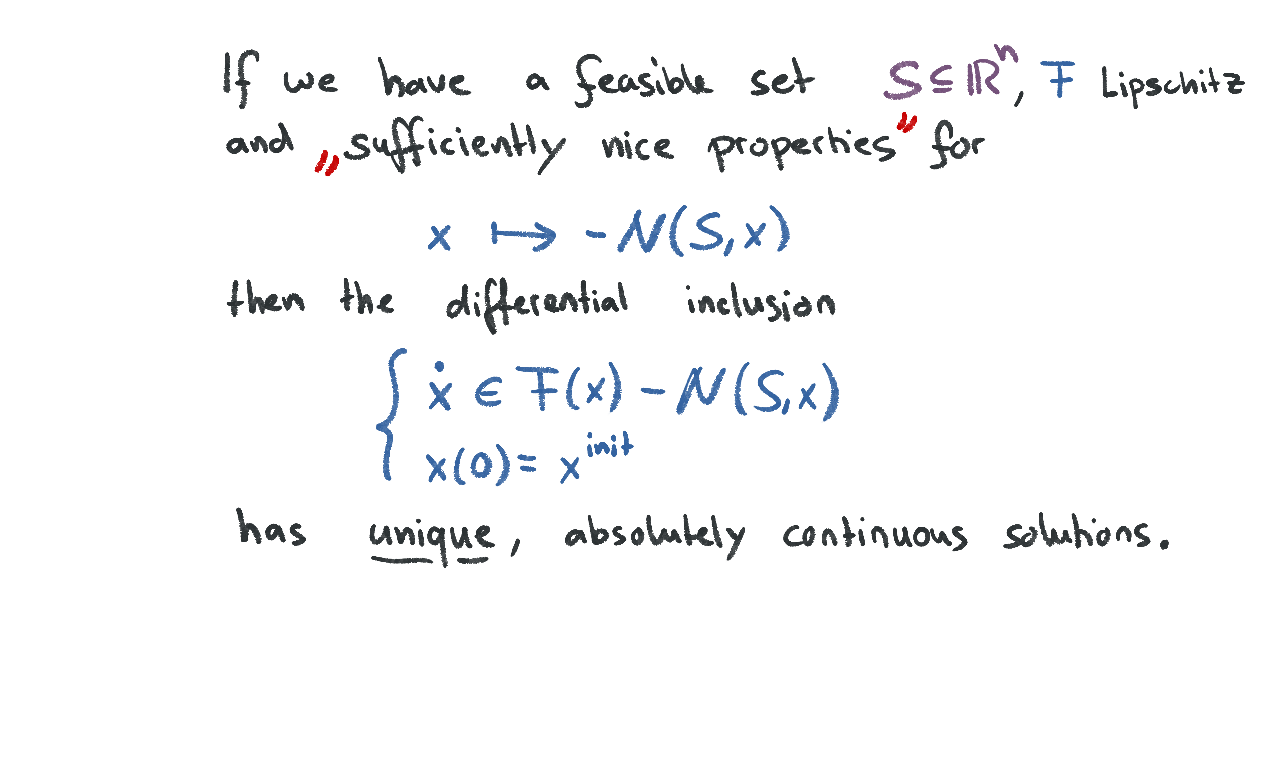 If we have a feasible set S ⊆ ℝⁿ, F Lipschitz
and „sufficiently nice properties" for
x ↦ -N(S,x)
then the differential inclusion
{ ẋ ∈ F(x) - N(S,x)
x(0) = x^init
has unique, absolutely continuous solutions.